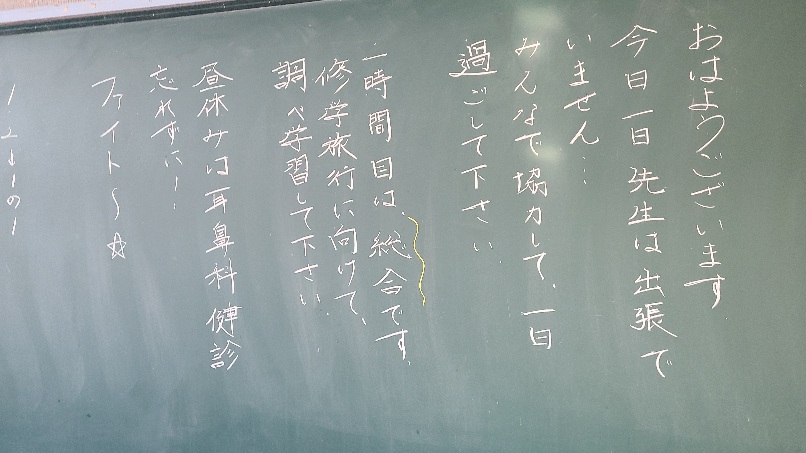 おはようございます
今日一日先生は出張で
いません…
みんなで協力して、一日
過ごして下さい。
一時間目は、総合です。
修学旅行に向けて、
調べ学習して下さい。
昼休みは耳鼻科健診
忘れずに!!
ファイト〜☆